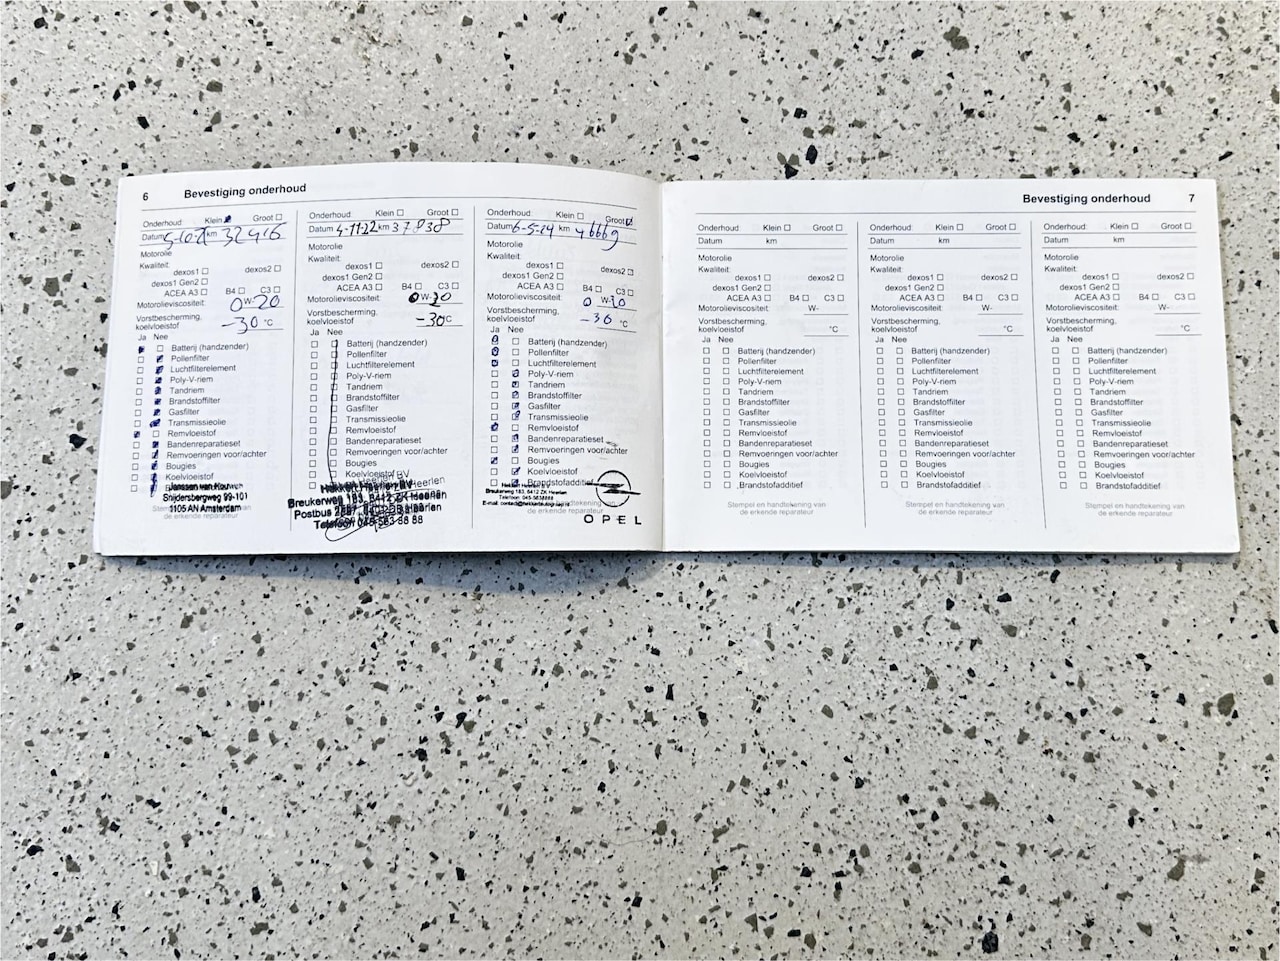 6 Bevestiging onderhoud
Onderhoud: Klein Groot
Datum km 32916
Motorolie
Kwaliteit:
dexos1 dexos2
dexos1 Gen2
ACEA A3 B4 C3
Motorolieviscositeit: 0 W-20
Vorstbescherming,
koelvloeistof -30 °C
Ja Nee
Batterij (handzender)
Pollenfilter
Luchtfilterelement
Poly-V-riem
Tandriem
Brandstoffilter
Gasfilter
Transmissieolie
Remvloeistof
Bandenreparatieset
Remvoeringen voor/achter
Bougies
Koelvloeistof
Snijdersbergweg 99-101
1105 AN Amsterdam
de erkende reparateur
Onderhoud: Klein Groot
Datum 4-11-22 km 37838
Motorolie
Kwaliteit:
dexos1 dexos2
dexos1 Gen2
ACEA A3 B4 C3
Motorolieviscositeit: 0 W-
Vorstbescherming,
koelvloeistof -30 °C
Ja Nee
Batterij (handzender)
Pollenfilter
Luchtfilterelement
Poly-V-riem
Tandriem
Brandstoffilter
Gasfilter
Transmissieolie
Remvloeistof
Bandenreparatieset
Remvoeringen voor/achter
Bougies
Koelvloeistof
Breukerweg 183, 6412 ZK Heerlen
Postbus
Telefoon 045-563 88 88
Onderhoud: Klein Groot
Datum 6-5-24 km 46669
Motorolie
Kwaliteit:
dexos1 dexos2
dexos1 Gen2
ACEA A3 B4 C3
Motorolieviscositeit: 0 W-
Vorstbescherming,
koelvloeistof -36 °C
Ja Nee
Batterij (handzender)
Pollenfilter
Luchtfilterelement
Poly-V-riem
Tandriem
Brandstoffilter
Gasfilter
Transmissieolie
Remvloeistof
Bandenreparatieset
Remvoeringen voor/achter
Bougies
Koelvloeistof
Brandstofadditief
Breukerweg 183, 6412 ZK Heerlen
Telefoon: 045-5638888
de erkende reparateur
OPEL
Bevestiging onderhoud 7
Onderhoud: Klein Groot
Datum km
Motorolie
Kwaliteit:
dexos1 dexos2
dexos1 Gen2
ACEA A3 B4 C3
Motorolieviscositeit: W-
Vorstbescherming,
koelvloeistof °C
Ja Nee
Batterij (handzender)
Pollenfilter
Luchtfilterelement
Poly-V-riem
Tandriem
Brandstoffilter
Gasfilter
Transmissieolie
Remvloeistof
Bandenreparatieset
Remvoeringen voor/achter
Bougies
Koelvloeistof
Brandstofadditief
Stempel en handtekening van
de erkende reparateur
Onderhoud: Klein Groot
Datum km
Motorolie
Kwaliteit:
dexos1 dexos2
dexos1 Gen2
ACEA A3 B4 C3
Motorolieviscositeit: W-
Vorstbescherming,
koelvloeistof °C
Ja Nee
Batterij (handzender)
Pollenfilter
Luchtfilterelement
Poly-V-riem
Tandriem
Brandstoffilter
Gasfilter
Transmissieolie
Remvloeistof
Bandenreparatieset
Remvoeringen voor/achter
Bougies
Koelvloeistof
Brandstofadditief
Stempel en handtekening van
de erkende reparateur
Onderhoud: Klein Groot
Datum km
Motorolie
Kwaliteit:
dexos1 dexos2
dexos1 Gen2
ACEA A3 B4 C3
Motorolieviscositeit: W-
Vorstbescherming,
koelvloeistof °C
Ja Nee
Batterij (handzender)
Pollenfilter
Luchtfilterelement
Poly-V-riem
Tandriem
Brandstoffilter
Gasfilter
Transmissieolie
Remvloeistof
Bandenreparatieset
Remvoeringen voor/achter
Bougies
Koelvloeistof
Brandstofadditief
Stempel en handtekening van
de erkende reparateur